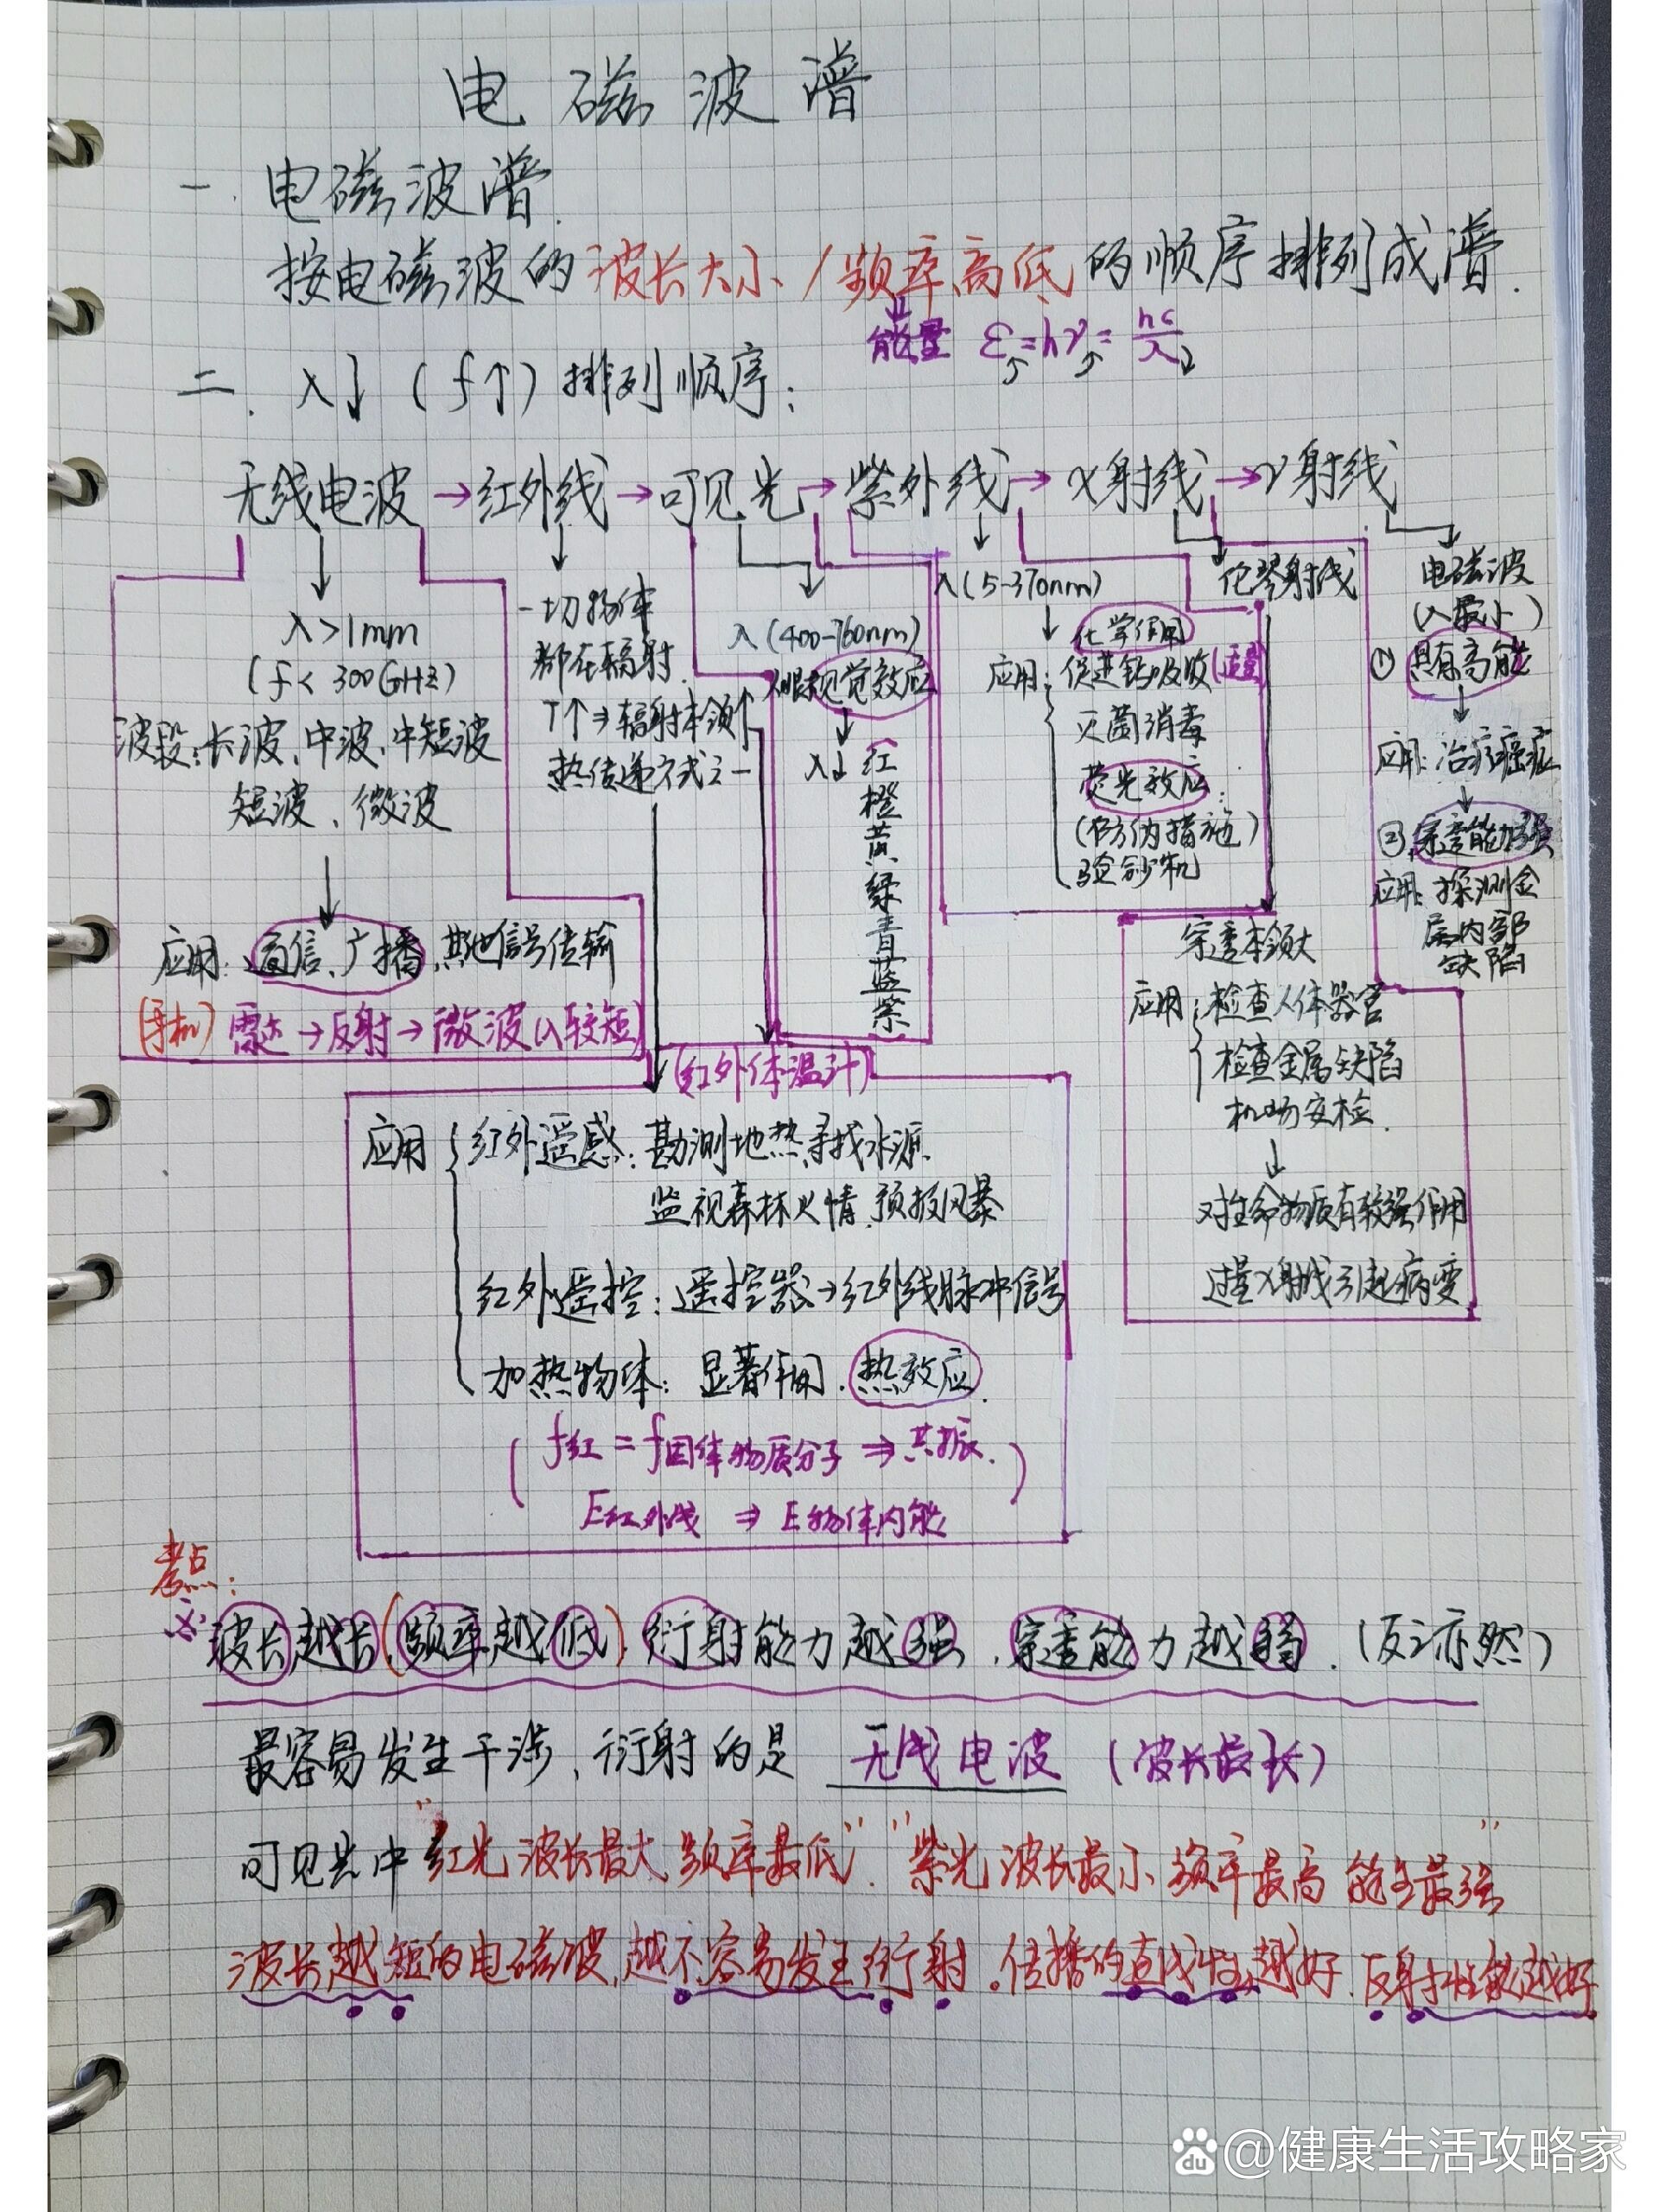 电磁波谱
一.电磁波谱.
按电磁波的波长大小/频率高低的顺序排列成谱.
能量 ε=hν=hc/λ
二.λ↓(f↑)排列顺序:
无线电波→红外线→可见光→紫外线→X射线→γ射线
λ>1mm
(f<300GHz)
波段:长波、中波、中短波
短波、微波
应用:通信、广播、其他信号传输
(手机)雷达→反射→微波(λ较短)
一切物体
都在辐射.
T↑⇒辐射本领↑
热传递方式之一
(红外体温计)
应用
红外遥感:勘测地热、寻找水源.
监视森林火情.预报风暴
红外遥控:遥控器→红外线脉冲信号
加热物体:显著作用.热效应.
(f红=f固体物质分子⇒共振.
E红外线⇒E物体内能)
λ(400-760nm)
人眼视觉效应
λ↓红橙黄绿青蓝紫
λ(5-370nm)
化学作用
应用:促进钙吸收(适量)
灭菌消毒
荧光效应.
(防伪措施)
验钞机
伦琴射线
穿透本领大
应用:检查人体器官
检查金属缺陷
机场安检.
对生命物质有较强作用
过量X射线引起病变
电磁波
(λ最小)
①具有高能
应用:治疗癌症
②穿透能力强
应用:探测金
属内部
缺陷
考点:
※波长越长(频率越低).衍射能力越强.穿透能力越弱.(反之亦然)
最容易发生干涉、衍射的是 无线电波 (波长最长)
可见光中"红光波长最大、频率最低".“紫光波长最小、频率最高 能量最强”
波长越短的电磁波,越不容易发生衍射.传播的直线性越好.反射性能越好
du @健康生活攻略家